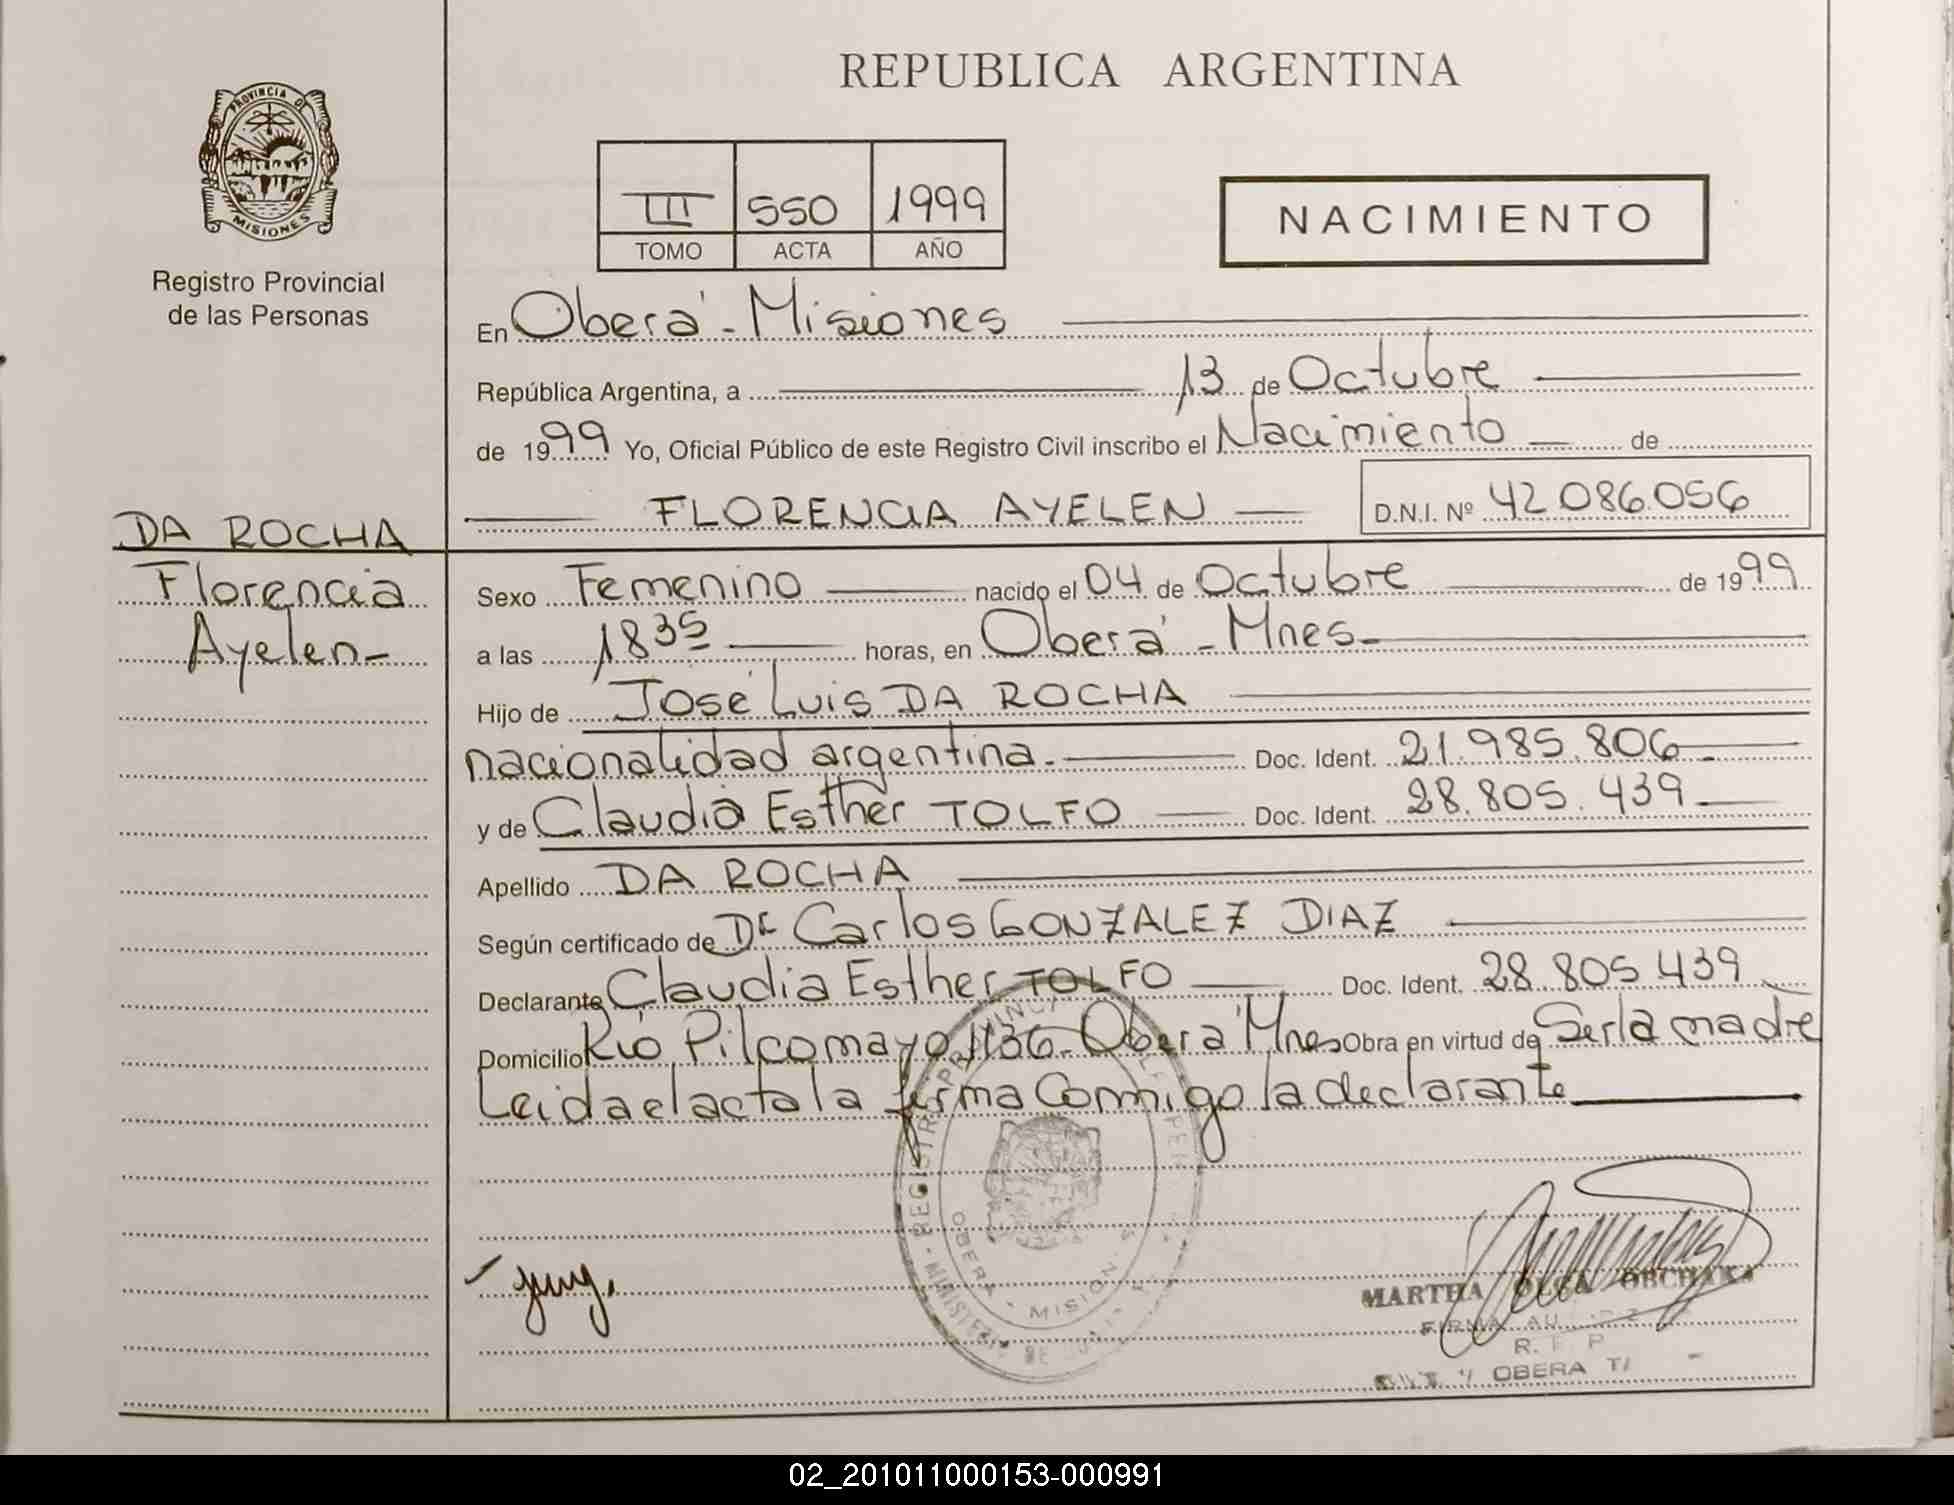 REPUBLICA ARGENTINA
PROVINCIA D
MISIONES
Registro Provincial
de las Personas
III 550 1999
TOMO ACTA AÑO
NACIMIENTO
En Oberá - Misiones
República Argentina, a 13 de Octubre
de 1999 Yo, Oficial Público de este Registro Civil inscribo el Nacimiento de
FLORENCIA AYELEN D.N.I. Nº 42.086.056
DA ROCHA
Florencia
Ayelen-
Sexo Femenino nacido el 04 de Octubre de 1999
a las 18 35 horas, en Oberá - Mnes-
Hijo de José Luis DA ROCHA
nacionalidad argentina. Doc. Ident. 21.985.806
y de Claudia Esther TOLFO Doc. Ident. 28.805.439
Apellido DA ROCHA
Según certificado de Dr Carlos GONZALEZ DIAZ
Declarante Claudia Esther TOLFO Doc. Ident. 28.805.439
Domicilio Río Pilcomayo 1136- Oberá Mnes Obra en virtud de Ser la madre
Leida el acta la firma conmigo la declarante
REGISTRO PROVINCIAL
OBERA - MISIONES
MARTHA OLGA OBCHAKA
R. P.
OBERA
02_201011000153-000991